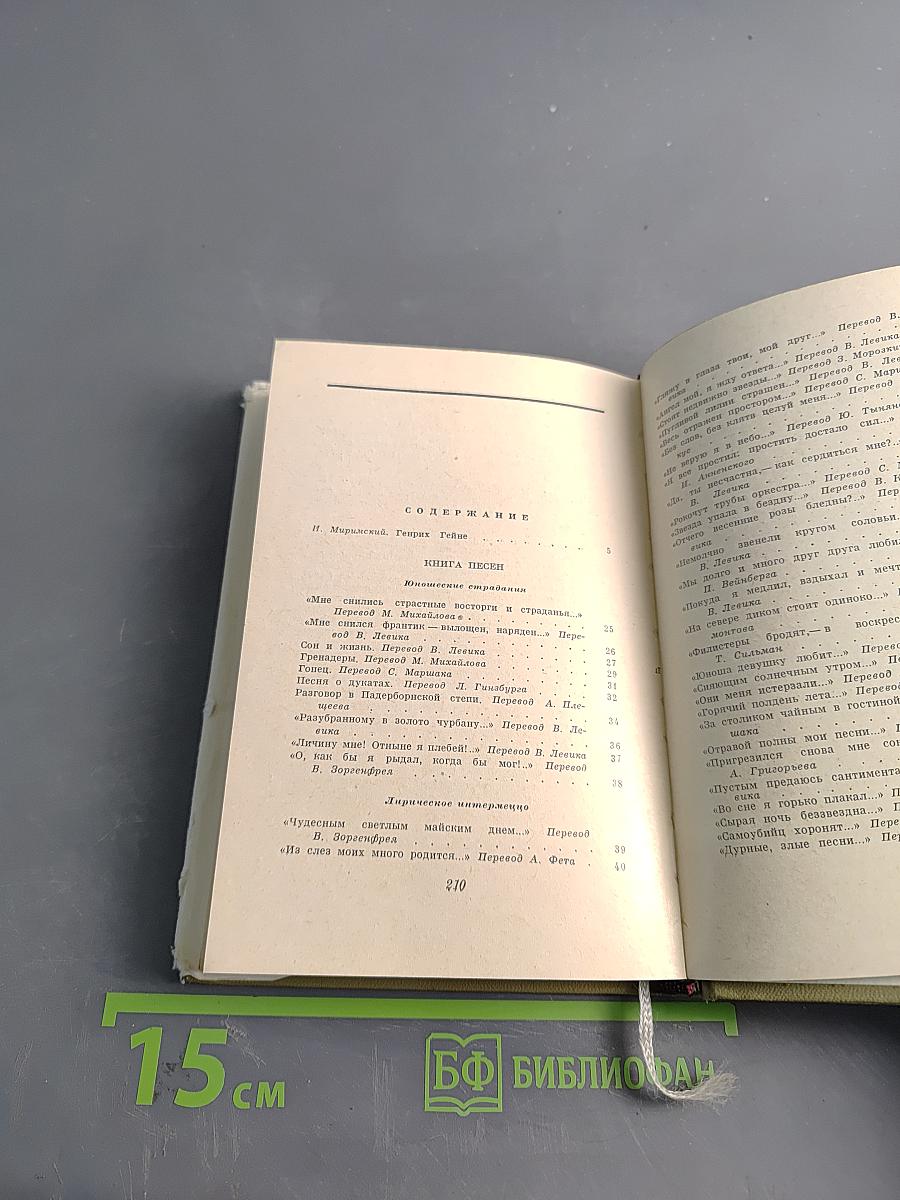 СОДЕРЖАНИЕ
И. Миримский. Генрих Гейне . . . . . . . . . 5
КНИГА ПЕСЕН
Юношеские страдания
«Мне снились страстные восторги и страданья...»
Перевод М. Михайлова . . . . . . . . . 25
«Мне снился франтик — вылощен, наряден...» Пере-
вод В. Левика . . . . . . . . . 26
Сон и жизнь. Перевод В. Левика . . . . . . 27
Гренадеры. Перевод М. Михайлова . . . . . . 29
Гонец. Перевод С. Маршака . . . . . . 31
Песня о дукатах. Перевод Л. Гинзбурга . . . . 32
Разговор в Падерборнской степи. Перевод А. Пле-
щеева . . . . . . . . . 34
«Разубранному в золото чурбану...» Перевод В. Ле-
вика . . . . . . . . . 36
«Личину мне! Отныне я плебей!..» Перевод В. Левика 37
«О, как бы я рыдал, когда бы мог!..» Перевод
В. Зоргенфрея . . . . . . . . . 38
Лирическое интермеццо
«Чудесным светлым майским днем...» Перевод
В. Зоргенфрея . . . . . . . . . 39
«Из слез моих много родится...» Перевод А. Фета . 40
210
«Гляжу в глаза твои, мой друг...» Перевод В.
вика
«Ангел мой, я жду ответа...» Перевод В. Левика
«Стоят недвижно звезды...» Перевод З. Морозки
«Пугливой лилии страшен...» Перевод В. Лев
«Весь отражен простором...» Перевод С. Мар
«Без слов, без клятв целуй меня...» Перевод
кус
«Не верую я в небо...» Перевод Ю. Тынян
«Я все простил: простить достало сил...»
И. Анненского
«Да, ты несчастна,— как сердиться мне?..
В. Левика
«Рокочут трубы оркестра...» Перевод С. М
«Звезда упала в бездну...» Перевод В. К
«Отчего весенние розы бледны?..» Пер
вика
«Немолчно звенели кругом соловьи.
В. Левика
«Мы долго и много друг друга люби
П. Вейнберга
«Покуда я медлил, вздыхал и мечт
В. Левика
«На севере диком стоит одиноко...»
монтова
«Филистеры бродят,— в воскрес
Т. Сильман
«Юноша девушку любит...» Перево
«Сияющим солнечным утром...» П
«Они меня истерзали...» Перевод
«Горячий полдень лета...» Перевод
«За столиком чайным в гостиной
шака
«Отравой полны мои песни...» П
«Пригрезился снова мне сон
А. Григорьева
«Пустым предаюсь сантимента
вика
«Во сне я горько плакал...» П
«Сырая ночь беззвездна...» П
«Самоубийц хоронят...» Пере
«Дурные, злые песни...» Пер
15 см
БФ БИБЛИОФАН